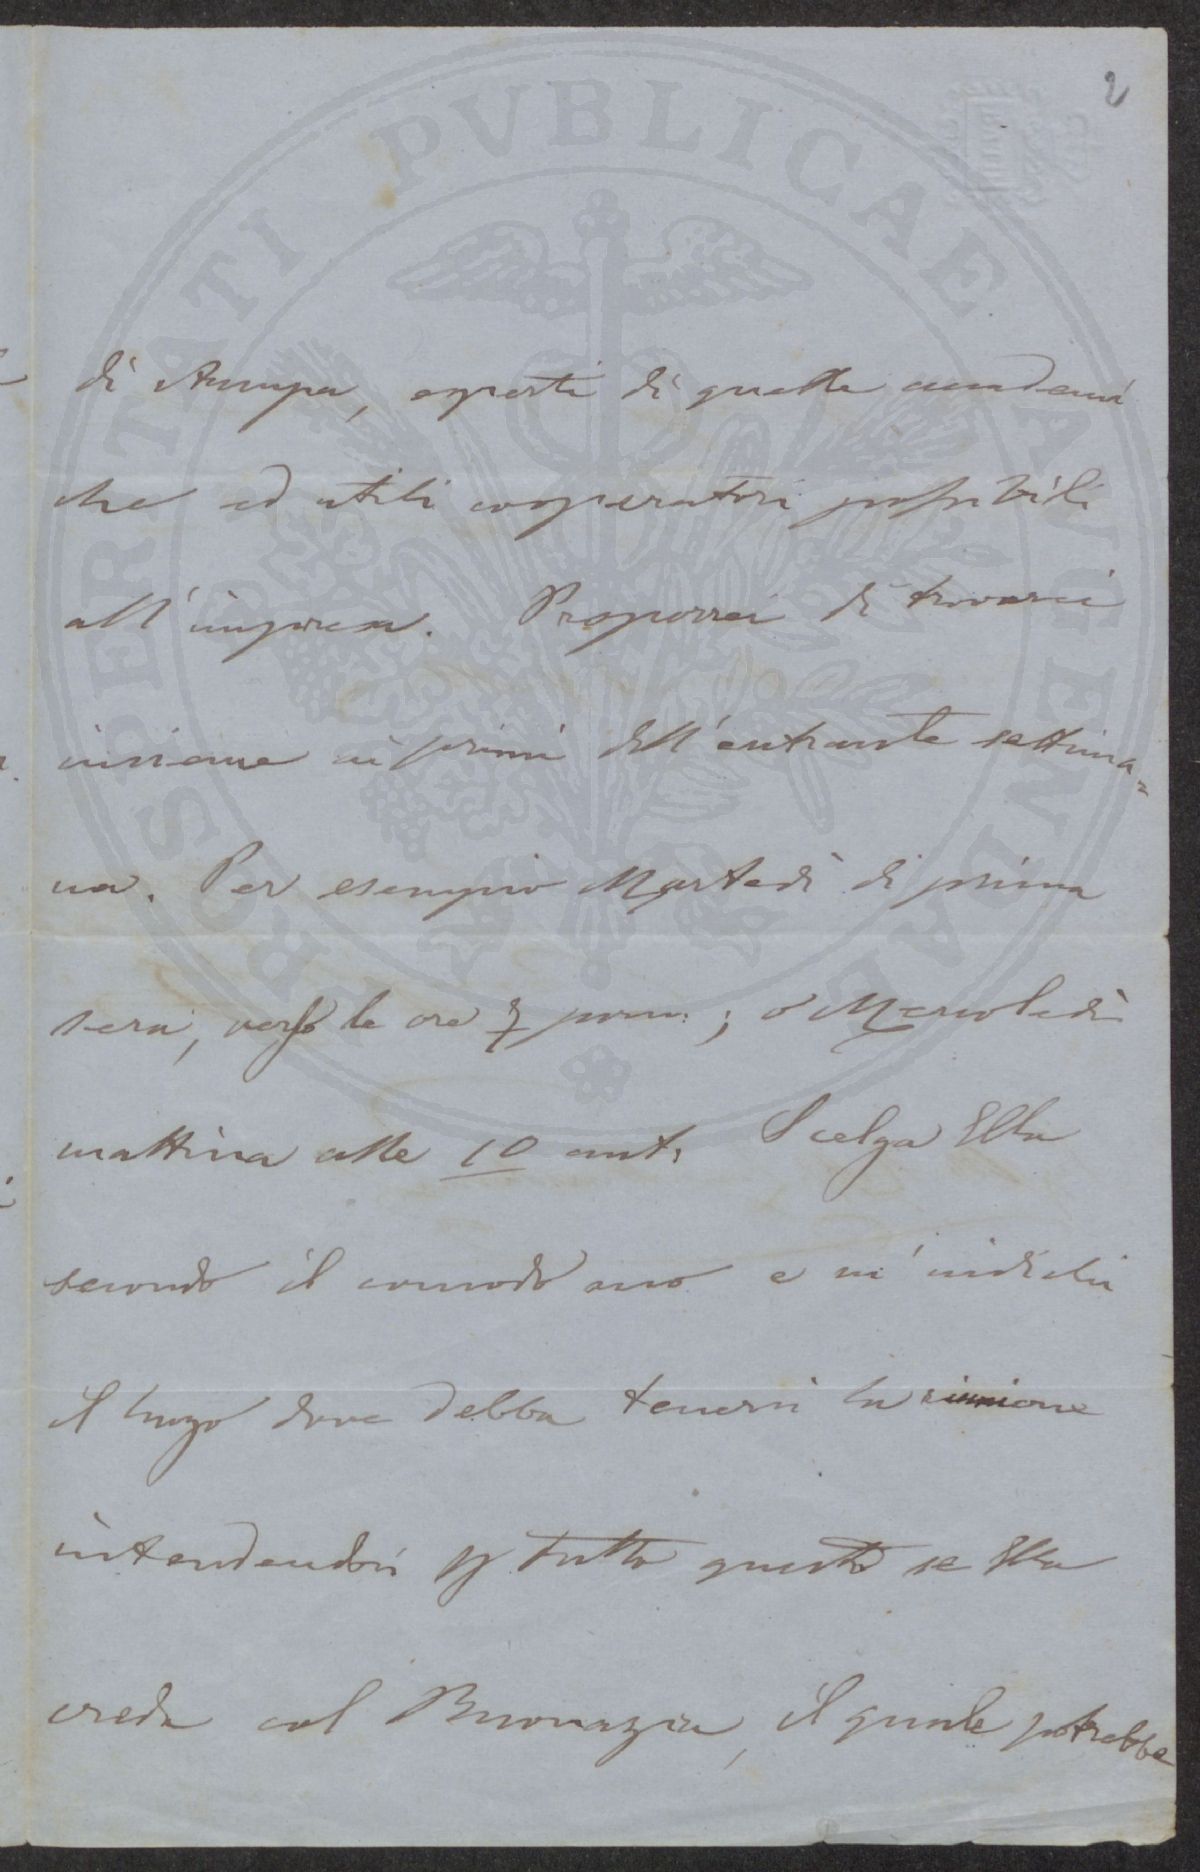 2
di stampa, esperti di quelle accademi
che ed utili cooperatori possibili
all'impresa. Proporrei di trovarci
insieme ai primi dell'entrante settima=
na. Per esempio Martedì di prima
sera, verso le ore 7 pom:; o Mercoledì
mattina alle 10 ant. Scelga Ella
secondo il comodo suo e m'indichi
il luogo dove debba tenersi la riunione
intendendosi p tutto questo se Ella
creda col Buonazia, il quale potrebbe
PROSPERITATI PVBLICAE AVGENDAE